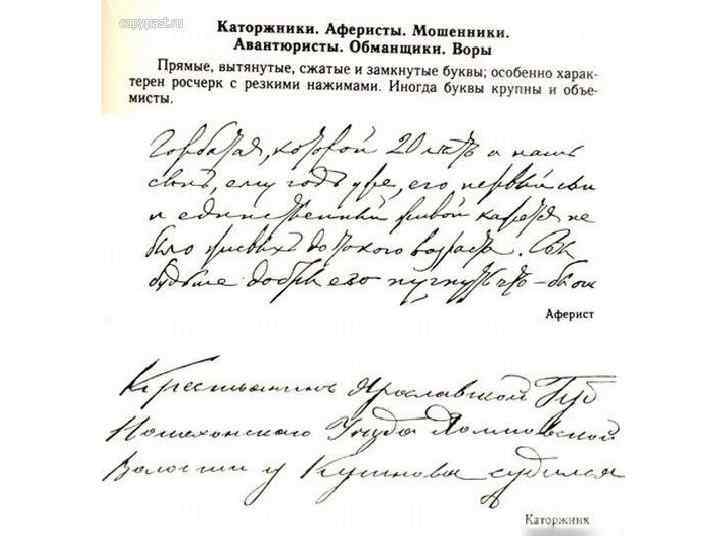 copypast.ru
Каторжники. Аферисты. Мошенники.
Авантюристы. Обманщики. Воры
Прямые, вытянутые, сжатые и замкнутые буквы; особенно харак-
терен росчерк с резкими нажимами. Иногда буквы крупны и объе-
мисты.
Горбатая, которой 20 летъ и нашъ
сынъ, ему годъ уже, его первый сын
и единственный живой кажется не
було до такого возраста.
будьте добры его
Аферист
Крестьянинъ Ярославской Губ
Пошехонскаго Уезда
Волости у судился
Каторжник